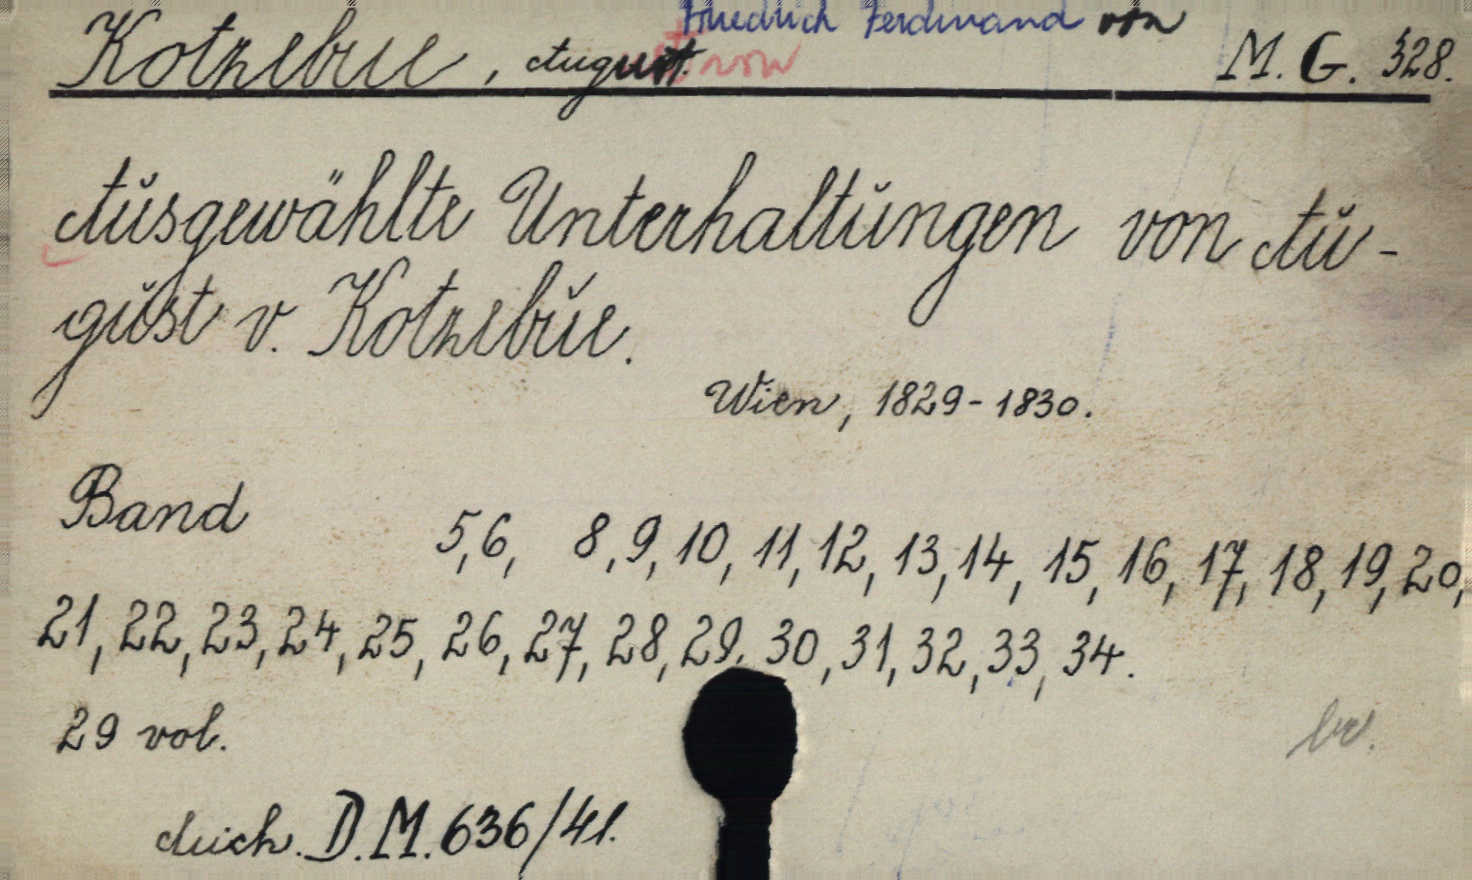 Kotzebue, August. Friedrich Ferdinand von M. G. 328.
von
Ausgewählte Unterhaltungen von Au-
gust v. Kotzebue.
Wien, 1829-1830.
Band 5,6, 8,9,10, 11,12, 13,14, 15, 16, 17, 18, 19, 20,
21, 22, 23, 24, 25, 26, 27, 28, 29, 30, 31, 32, 33, 34.
29 vol.
D.M. 636/41.